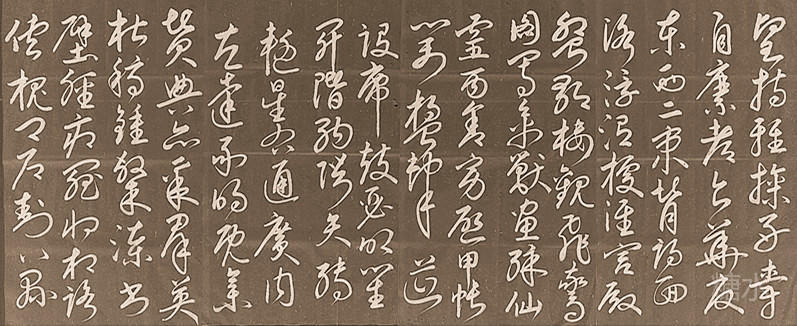 堅持雅操好爵
自縻都邑華夏
東西二京背邙面
洛浮渭據涇宮殿
盤鬱樓觀飛驚
圖寫禽獸畫彩仙
靈丙舍傍啟甲帳
對楹肆筵
設席鼓瑟吹笙
升階納陛弁轉
疑星右通廣內
左達承明既集
墳典亦聚群英
杜稿鍾隸漆書
壁經府羅將相路
俠槐卿戶封八縣
糖水